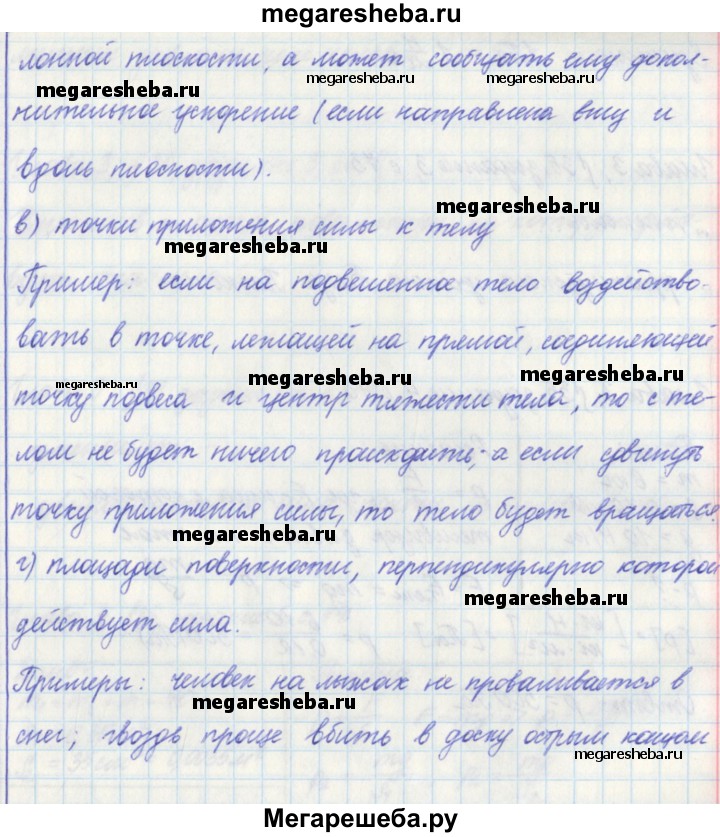 megaresheba.ru
лонной плоскости, а может сообщать ему допол-
megaresheba.ru megaresheba.ru megaresheba.ru
нительное ускорение (если направлена вниз и
вдоль плоскости).
megaresheba.ru
в) точки приложения силы к телу
megaresheba.ru
Пример: если на подвешенное тело воздейство-
вать в точке, лежащей на прямой, соединяющей
megaresheba.ru megaresheba.ru megaresheba.ru
точку подвеса и центр тяжести тела, то с те-
лом не будет ничего происходить, а если сдвинуть
точку приложения силы, то тело будет вращаться.
megaresheba.ru
г) площади поверхности, перпендикулярно которой
megaresheba.ru
действует сила.
Примеры: человек на лыжах не проваливается в
megaresheba.ru
снег; гвоздь проще вбить в доску острым концом
megaresheba.ru
Мегарешеба.ру